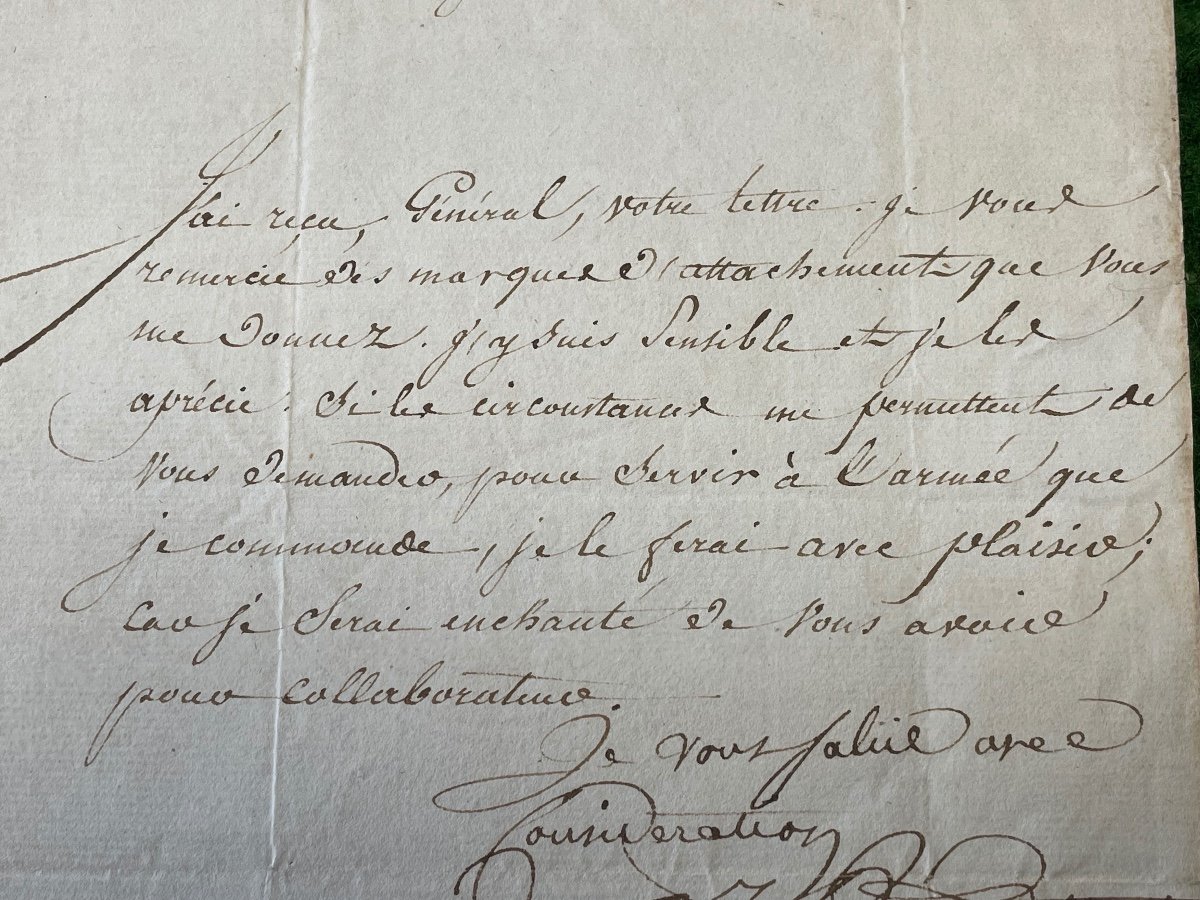 J'ai reçu, Général, votre lettre. je vous
remercie des marques d'attachement que vous
me donnez. j'y suis sensible et je les
aprécie. Si les circonstances me permettent de
vous demander, pour servir à l'armée que
je commande, je le ferai avec plaisir;
car je serai enchanté de vous avoir
pour collaborateur.
Je vous salüe avec
Consideration